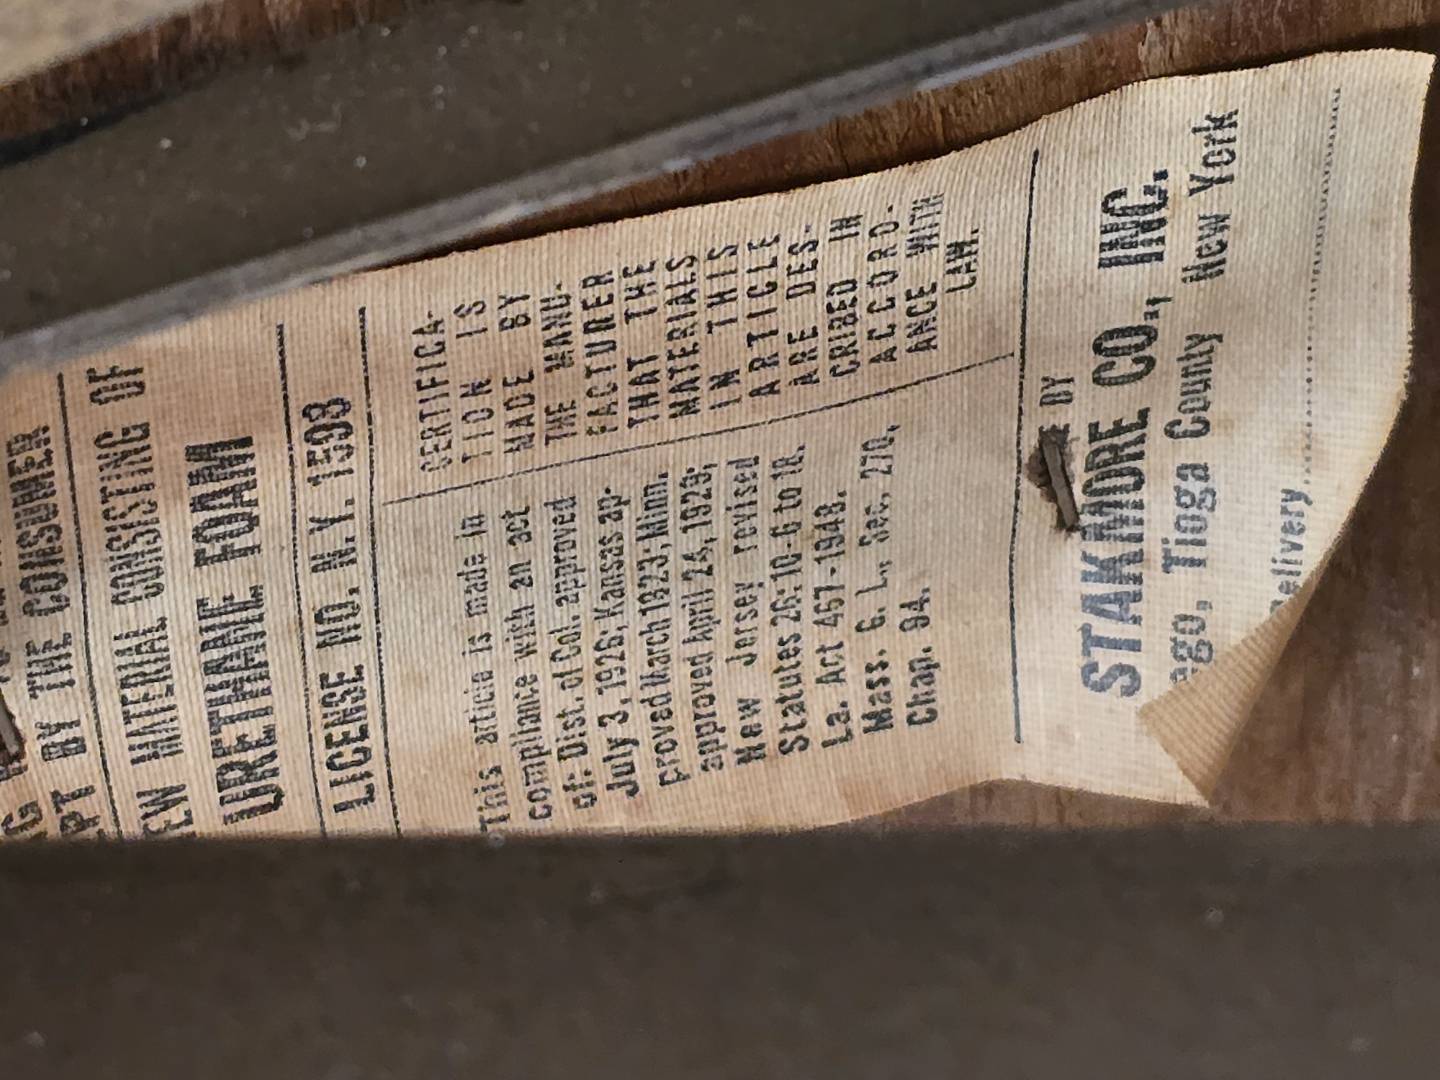 BY THE CONSUMER
MATERIAL CONSISTING OF
URETHANE FOAM
LICENSE NO. N.Y. 1598
This article is made in
compliance with an act
of: Dist. of Col. approved
July 3, 1926; Kansas ap-
proved March 1923; Minn.
approved April 24, 1929;
New Jersey revised
Statutes 26:10-6 to 18.
La. Act 467-1948.
Mass. G. L., Sec. 270,
Chap. 94.
CERTIFICA-
TION IS
MADE BY
THE MANU-
FACTURER
THAT THE
MATERIALS
IN THIS
ARTICLE
ARE DES-
CRIBED IN
ACCORD-
ANCE WITH
LAW.
BY
STAKMORE CO., INC.
ego, Tioga County New York
elivery